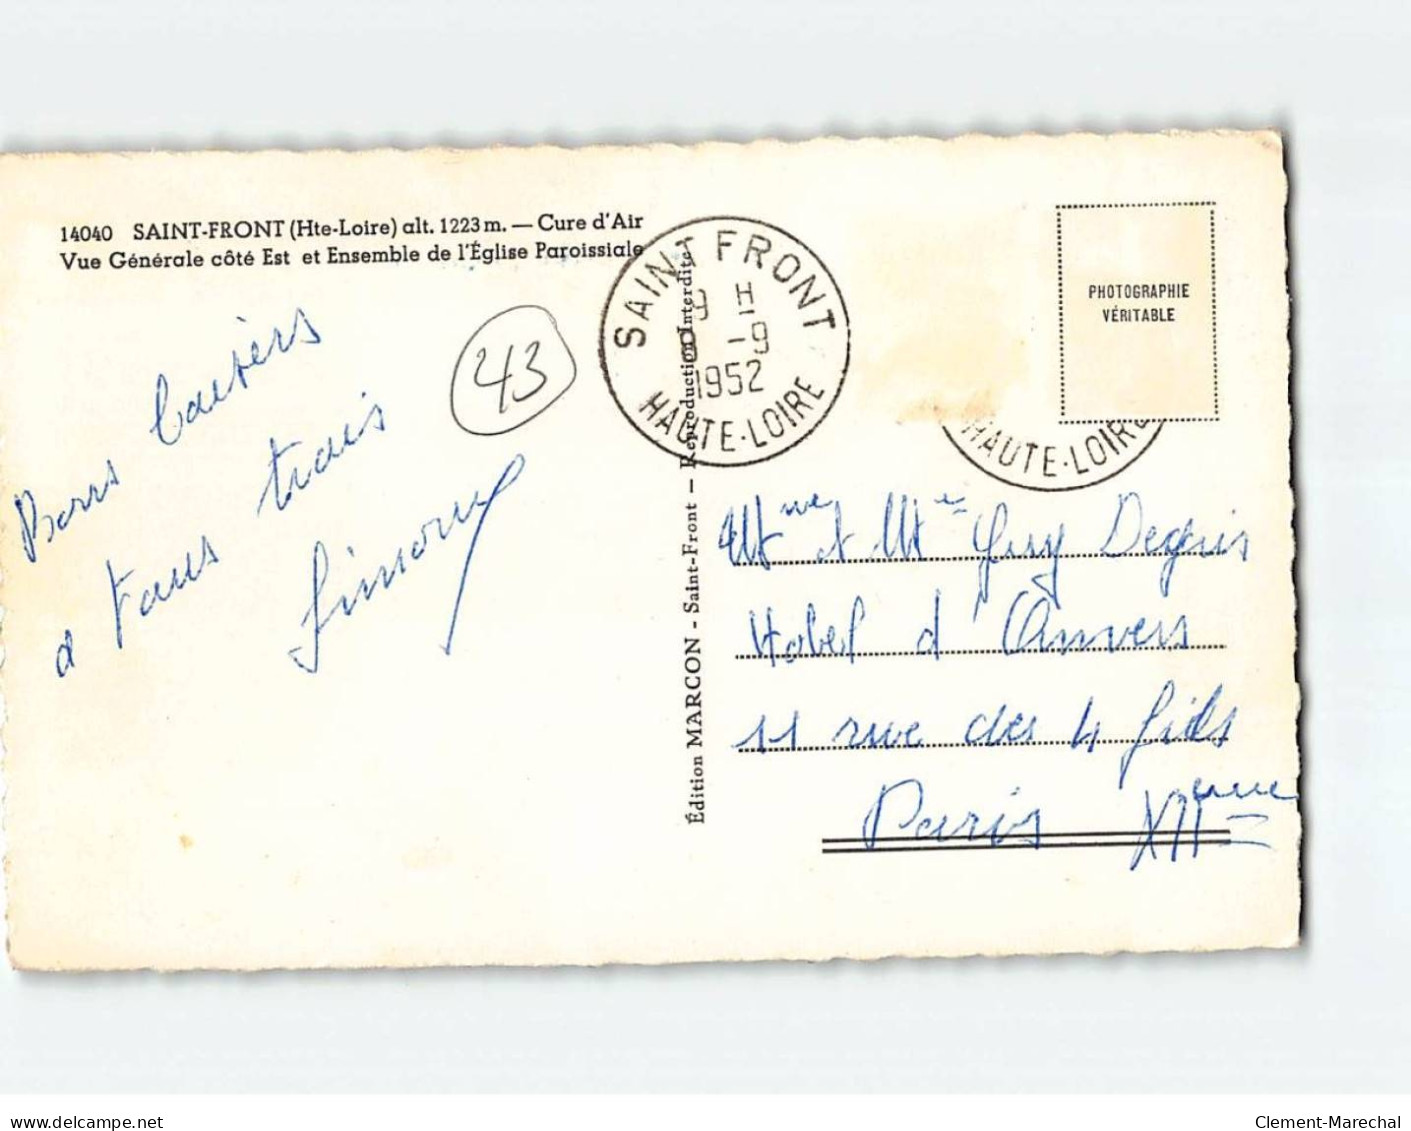 14040 SAINT-FRONT (Hte-Loire) alt. 1223 m. — Cure d'Air
Vue Générale côté Est et Ensemble de l'Église Paroissiale
SAINT FRONT
9 H
-9
1952
HAUTE-LOIRE
PHOTOGRAPHIE
VÉRITABLE
HAUTE-LOIRE
43
Bons baisers
à tous trois
Simone
Édition MARCON - Saint-Front — Reproduction Interdite
et Guy
Hotel d'Anvers
11 rue des 4 fils
Paris
delcampe.net
Clement-Marechal